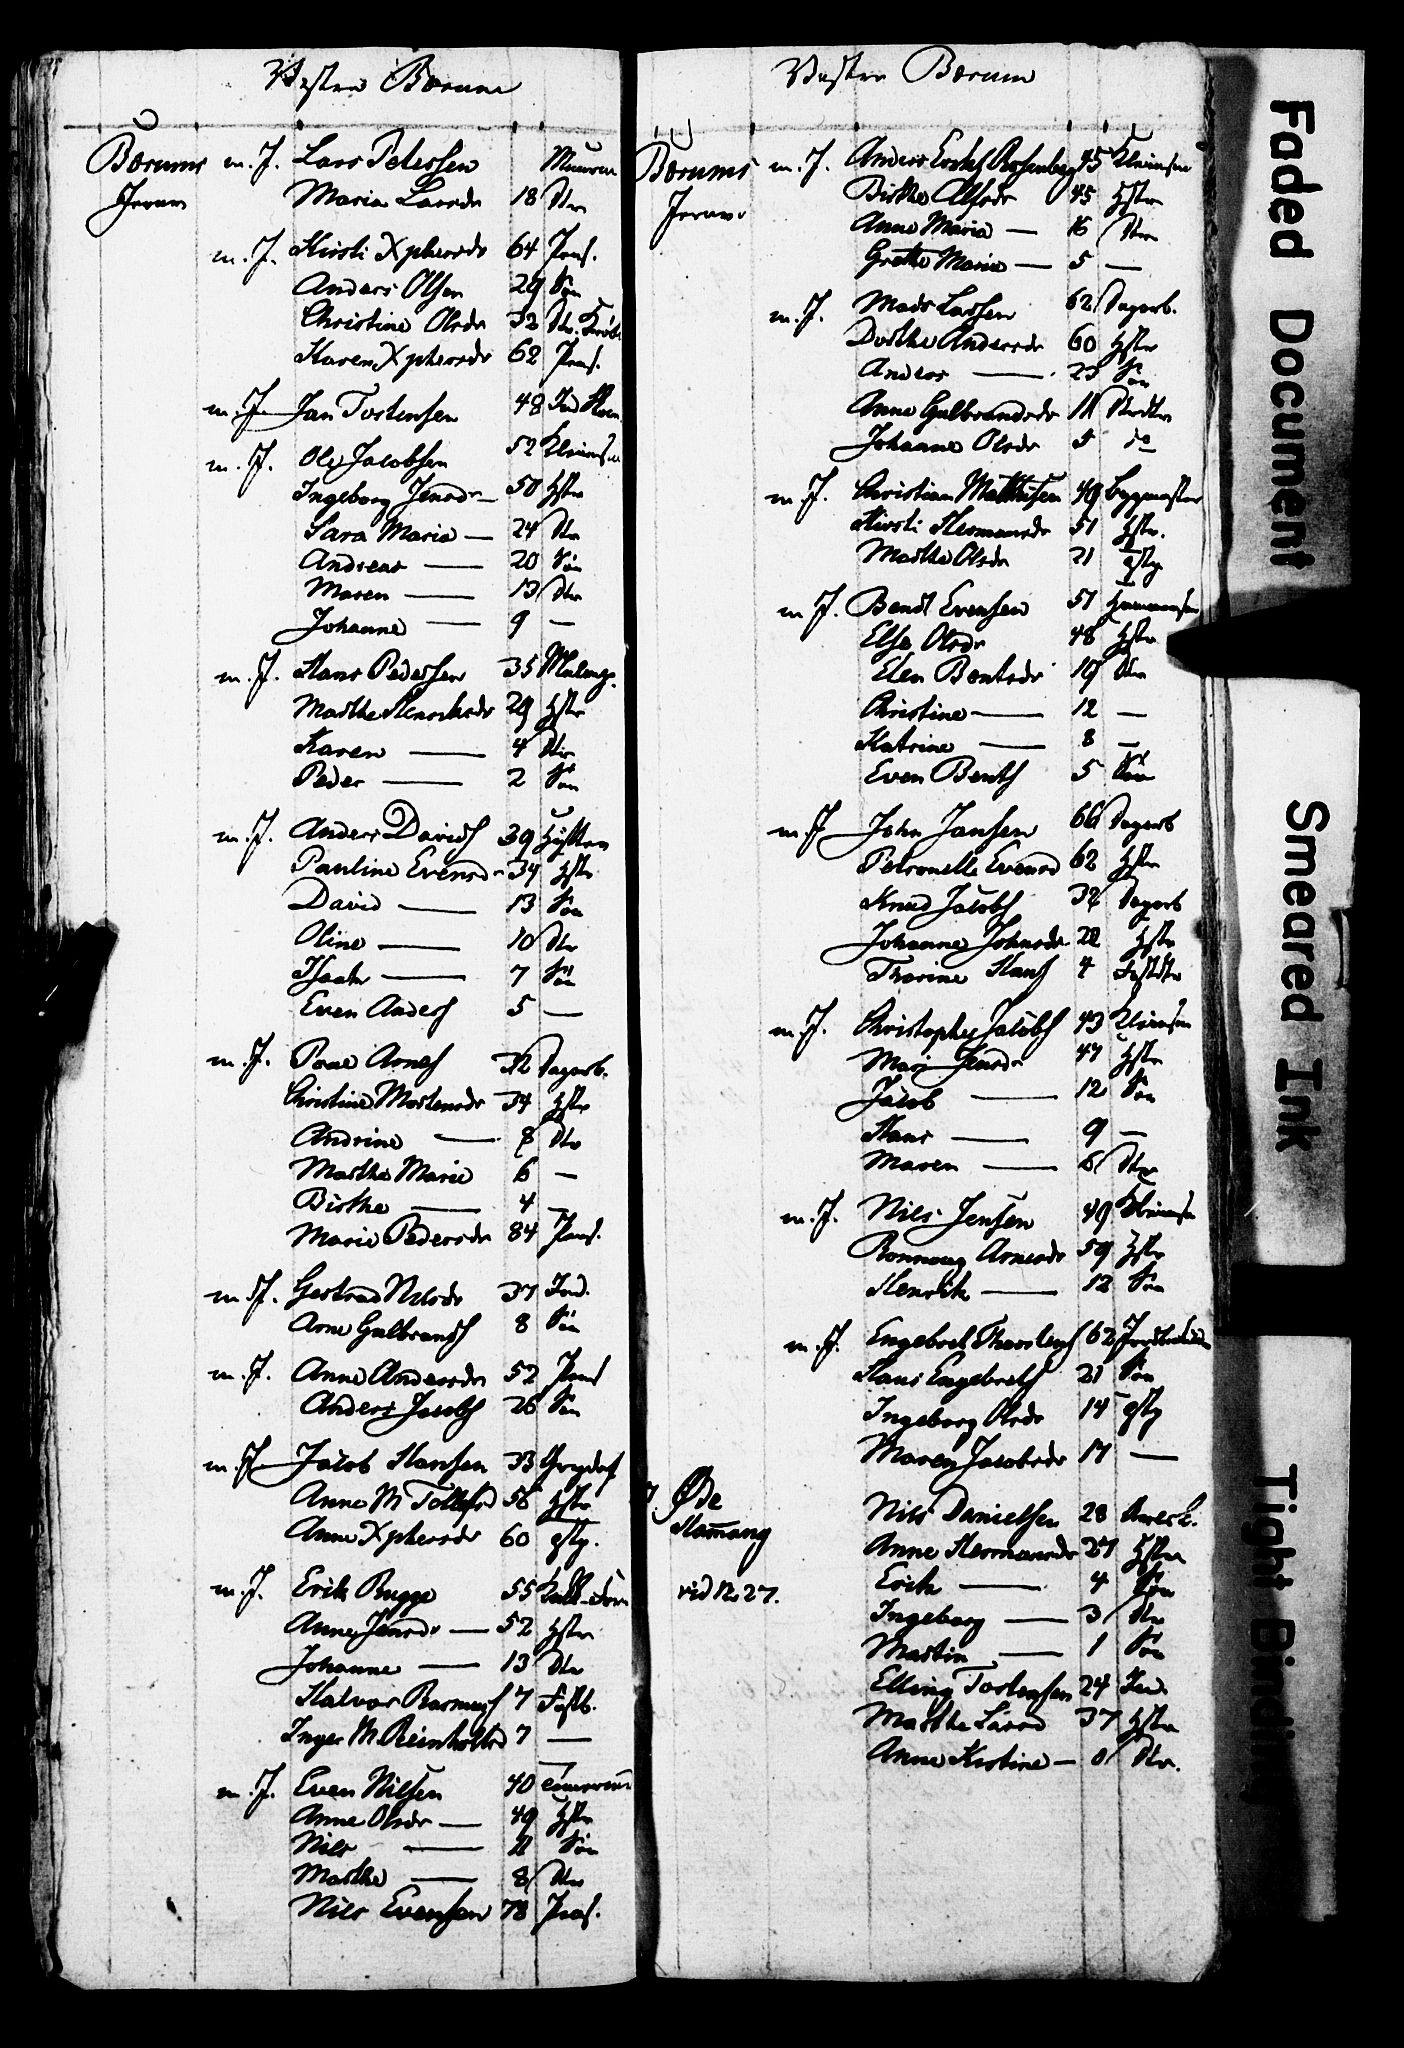 Vestre Bærum
Bærums m. J. Lars Petersen Muurm
Jernv Maria Larsdr 18 Dtr
m. J. Kirsti Xphersdr 64 Pens.
Anders Olsen 29 Søn
Christine Olsdr 32 Dtr.
Karen Xphersdr 62 Pens.
m. J. Jan Tostensen 48
m. J. Ole Jacobsen 52 Kleinsm
Ingeborg Jensdr 50 Hstr
Sara Maria — 24 Dtr
Andreas — 20 Søn
Maren — 13 Dtr
Johanne — 9 —
m. J. Hans Pedersen 35
Marthe Henriksdr 29 Hstr
Karen — 4 Dtr
Peder — 2 Søn
m. J. Anders Davids 39
Pauline Evensdr 34 Hstr
David — 13 Søn
Oline — 10 Dtr
Isach — 7 Søn
Even Anders 5 —
m. J. Poul Arnes 32 Dagarb.
Christine Mortensdr 34 Hstr
Andrine — 8 Dtr
Marthe Marie 6 —
Birthe — 4 —
Marie Pedersdr 84 Pens.
m. J. Gertrud Nilsdr 37 Ind.
Arne Gulbrands 8 Søn
m. J. Anne Andersdr 52 Pens
Anders Jacobs 26 Søn
m. J. Jacob Hansen 33
Anne M Tollefsd 56 Hstr
Anne Xphersdr 60
m. J. Erik Bugge 55
Anne Jensdr — 52 Hstr
Johanne — 13 Dtr
Halvor Rasmus 7 Fostb.
Inger M Reinholtsd 7 —
m. J. Even Nilsen 40
Anne Olsdr — 49 Hstr
Nils — 11 Søn
Marthe — 8 Dtr
Nils Evensen 78 Pens.
Vestre Bærum
Bærums m. J. Anders Rosenberg 45 Kleinsm
Jernv Birthe Olsdr 45 Hstr
Anne Maria — 16 Dtr
Grethe Marie — 5 —
m. J. Mads Larsen 62 Dagarb.
Dorthe Andersdr 60 Hstr
Anders — 23 Søn
Anne Gulbrandsdr 11
Johanne Olsdr 5 do
m. J. Christian Mathisen 49 Bygmester
Kirsti Hermansdr 51 Hstr.
Marthe Olsdr 21
m. J. Bendt Evensen 51 Hammersm
Else Olsdr 48 Hstr
Elen Bentsdr 19 Dtr
Christine — 12 —
Katrine — 8 —
Even Bents 5 Søn
m. J. John Jansen 66 Dagarb
Petronelle Evensd 62 Hstr
Knud Jacobs 32 Dagarb
Johanne Johnsdr 22 Hstr
Thorine Hans 4 Fostdtr
m. J. Christopher Jacobs 43 Kleinsm
Mari Jensdr 47 Hstr
Jacob — 12 Søn
Hans — 9 —
Maren — 6 Dtr
m. J. Nils Jensen 49 Kleinsm
Ronnaug Arnesdr 59 Hstr
Henrik — 12 Søn
m. J. Engebret Thorstens 62
Hans Engebrets 21 Søn
Ingeborg Olsdr 14
Maren Jacobsdr 17 —
Øde Nils Danielsen 28
Hamang Anne Hermansdr 27 Hstr
vid No 27. Erik — 4 Søn
Ingeborg — 3 Dtr
Martin — 1 Søn
Elling Tostensen 24 Ind.
Marthe Larsd 37 Hstr
Anne Kistine — 0 Dtr.
Faded Document
Smeared Ink
Tight Bindin